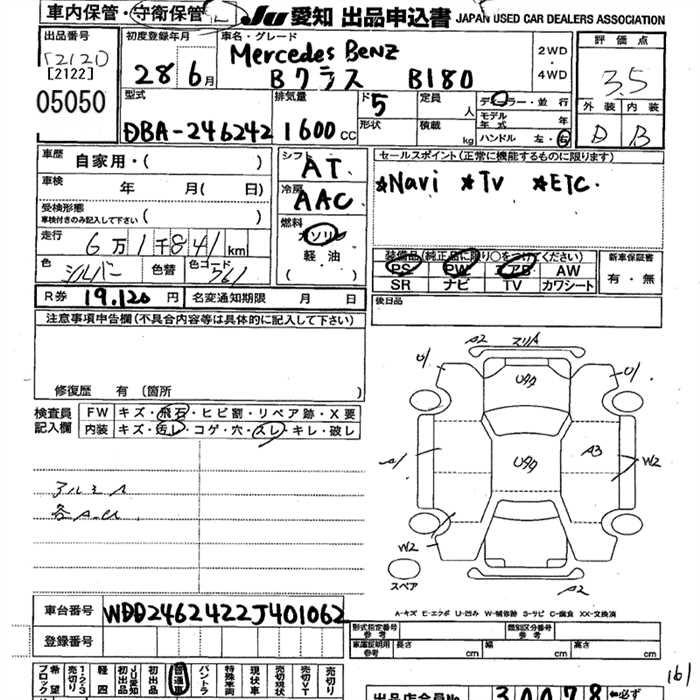 車内保管・守衛保管
Ju 愛知 出品申込書 JAPAN USED CAR DEALERS ASSOCIATION
出品番号
[2122]
05050
初度登録年月
28年6月
車名・グレード
Mercedes Benz
Bクラス B180
2WD
・
4WD
評価点
3.5
外装 内装
D B
型式
DBA-246242
排気量
1600cc
ドア
5
形状
定員
人
積載
kg
ディーラー・並行
モデル年式 年
ハンドル 左・右
車歴
自家用・( )
車検
年 月( 日)
受検形態
車検付きのみ記入して下さい ( )
走行
6万1千841km
色
シルバー
色替
色コード
761
シフト
AT
冷房
AAC
燃料
ガソリン
( 軽油 )
セールスポイント(正常に機能するものに限ります)
*Navi *TV *ETC.
装備品(純正品に限り○をつけてください)
PS PW AB AW
SR ナビ TV カワシート
新車保証書
有・無
R券 19.120円 名変通知期限 月 日
後日品
注意事項申告欄(不具合内容等は具体的に記入して下さい)
修復歴 有 〔箇所 )
検査員記入欄
FW キズ・飛石・ヒビ割・リペア跡・X要
内装 キズ・汚レ・コゲ・穴・スレ・キレ・破レ
アルミA
各A.U
A2 スリA
U1 U1
Uタク
A1
Uタク
A3
W2
W2
スペア
A2
A-キズ E-エクボ U-凹み W-補修跡 S-サビ C-腐食 XX-交換済
車台番号
WDD2462422J401062
登録番号
形式指定番号 参考
類別区分番号 参考
車庫証明用 参考
長さ cm 幅 cm 高さ cm
161
希望ブロック
売切り
1・2・3
軽四
JU愛知初出品
初出品
普通車
バントラ
特殊車両
現状車
売切現状
売切VT
売切り
出品店会員No.
←必ず